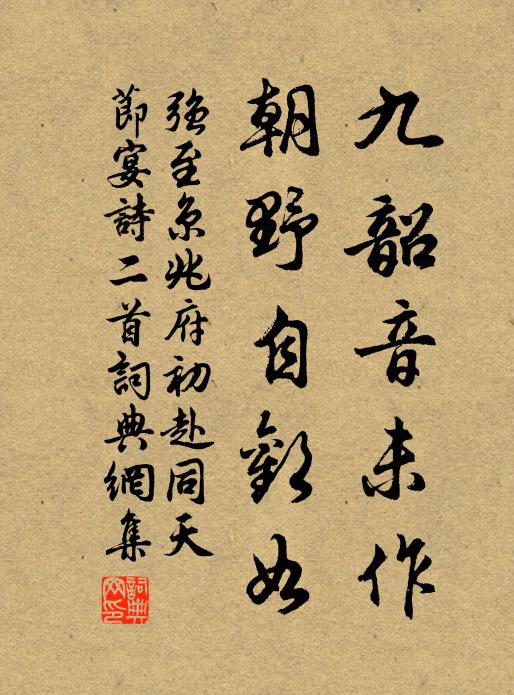 九韶音未作
朝野自歡如
強至京兆府初赴同天
節宴詩二首詞典網集
詞典网印